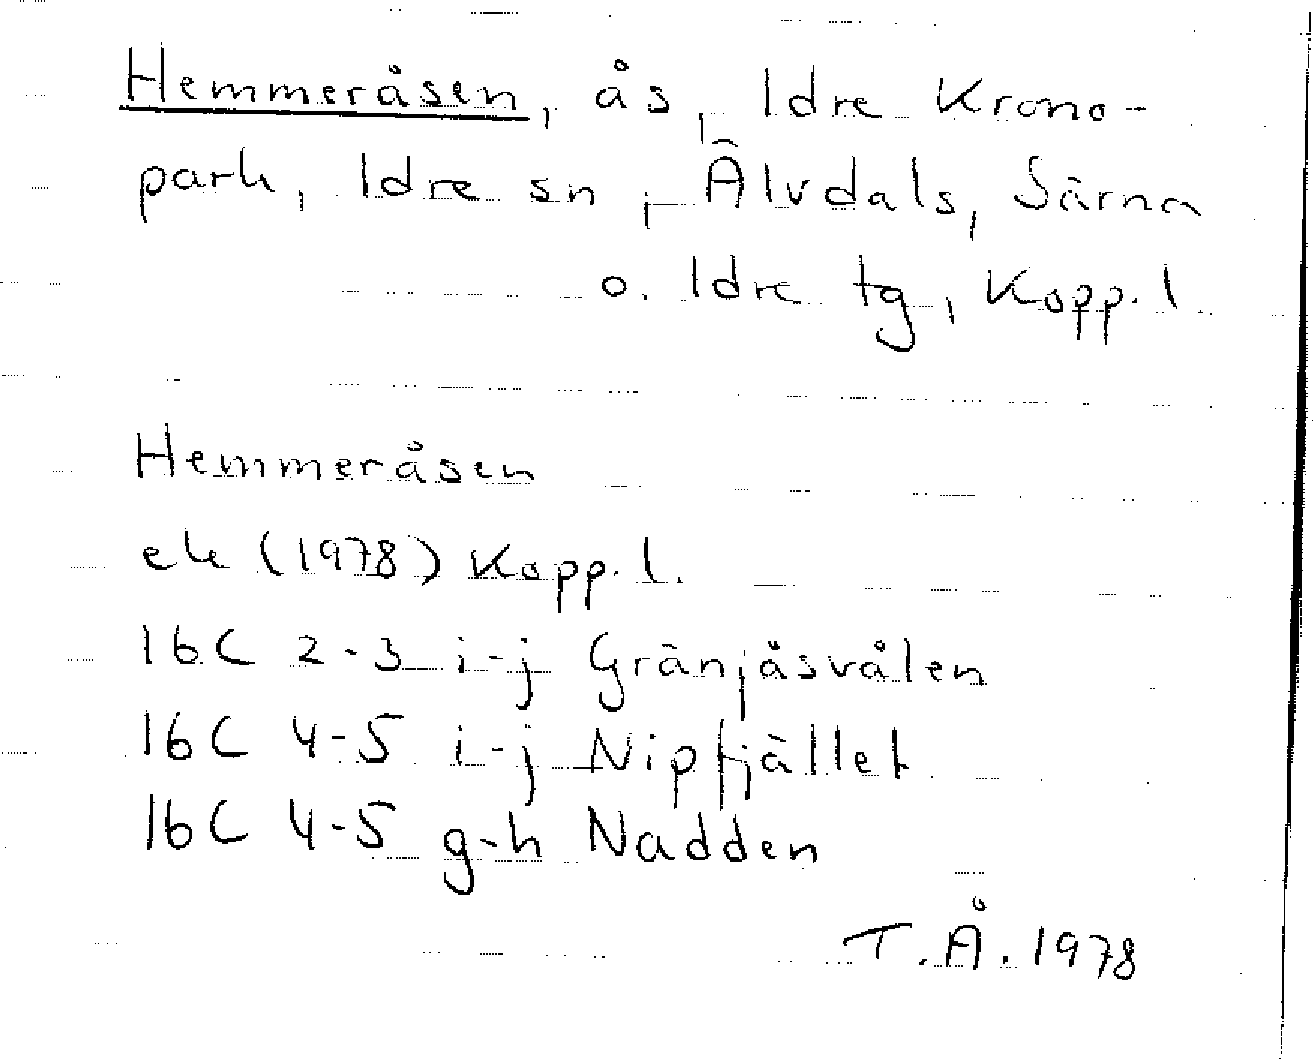 Hemmeråsen, ås, Idre Krono-
park, Idre sn, Älvdals, Särna
o. Idre tg, Kopp. l.
Hemmeråsen
ek (1978) Kopp. l.
16C 2-3 i-j Gränjåsvålen
16C 4-5 i-j Nipfjället
16C 4-5 g-h Nadden
T.Å. 1978